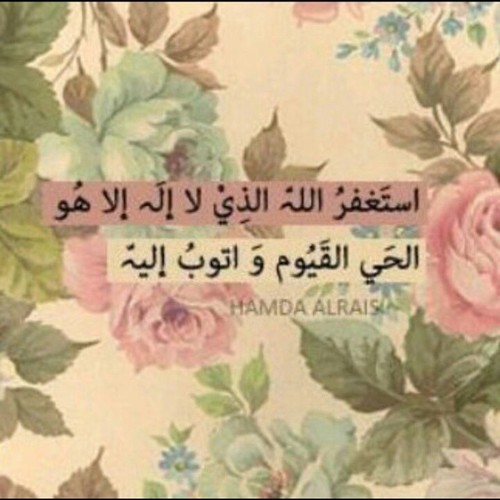 استَغفرُ اللہّ الذِيْ لا إلَہ إلا هُو
الحَي القَيُوم وَ اتوبُ إليہّ
HAMDA ALRAISI